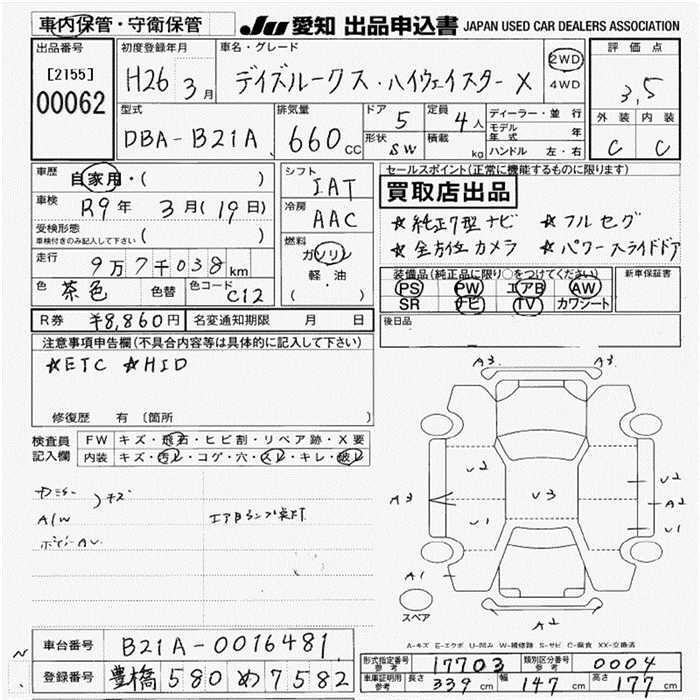 車内保管・守衛保管 JU 愛知 出品申込書 JAPAN USED CAR DEALERS ASSOCIATION
出品番号 [2155] 00062
初度登録年月 H26 3月
車名・グレード デイズルークス・ハイウェイスター X
2WD 4WD
評価点 3,5
外装 内装 C C
型式 DBA-B21A
排気量 660 CC
ドア 5
定員 4人
形状 SW
積載 kg
ディーラー・並行
モデル年式 年
ハンドル 左・右
車歴 自家用・( )
車検 R9年 3月(19日)
受検形態 車検付きのみ記入して下さい ( )
走行 9万7千038km
色 茶色 色替 色コード C12
シフト IAT
冷房 AAC
燃料 ガソリン 軽・油 ( )
セールスポイント(正常に機能するものに限ります)
買取店出品
☆純正7型ナビ ☆フルセグ
☆全方位カメラ ☆パワースライドドア
装備品(純正品に限り○をつけてください) 新車保証書
PS PW エアB AW
SR ナビ TV カワシート
R券 ¥8,860円 名変通知期限 月 日
後日品
注意事項申告欄(不具合内容等は具体的に記入して下さい)
☆ETC ☆HID
修復歴 有 〔箇所 〕
検査員記入欄 FW キズ・飛石・ヒビ割・リペア跡・X要
内装 キズ・汚レ・コゲ・穴・スレ・キレ・破レ
キズ
A/W
エアBランプ点灯
A3 A3
U2 U2
A3 U3 A2
U1 U1
A1
スペア A2
A-キズ E-エクボ U-凹み W-補修跡 S-サビ C-腐食 XX-交換済
車台番号 B21A-0016481
登録番号 豊橋 580 め 7582
形式指定番号 参考 17703 類別区分番号 参考 0004
車庫証明用 参考 長さ 339cm 幅 147cm 高さ 177cm